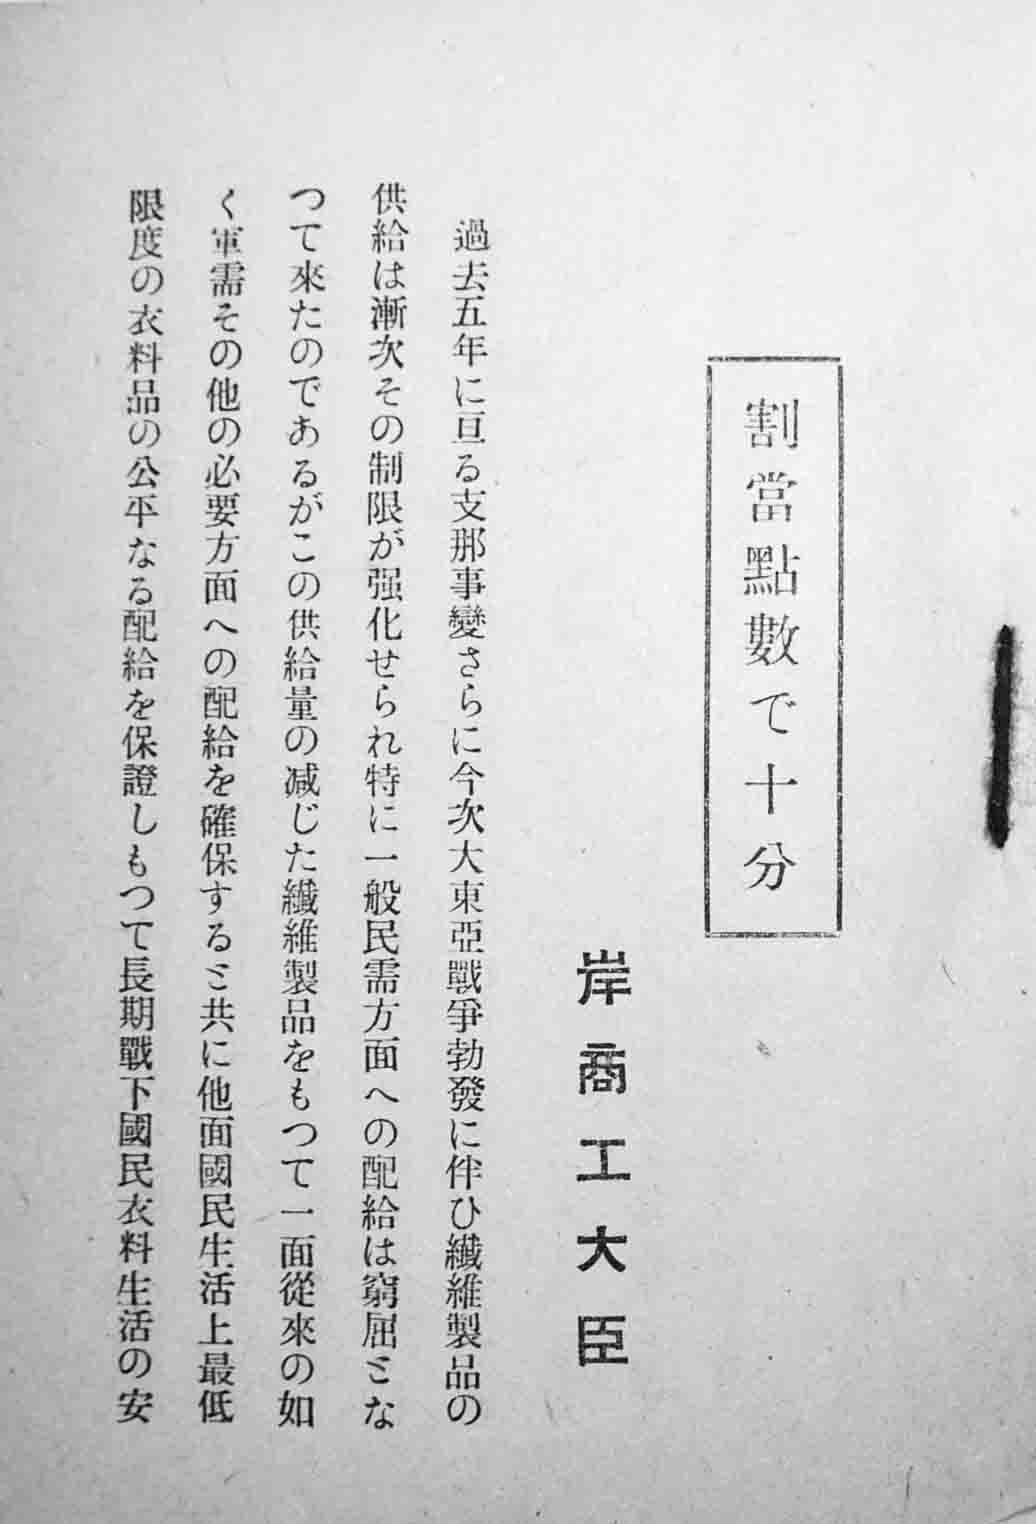 割當點數で十分
岸商工大臣
過去五年に亘る支那事變さらに今次大東亞戰爭勃發に伴ひ纖維製品の
供給は漸次その制限が强化せられ特に一般民需方面への配給は窮屈とな
つて來たのであるがこの供給量の减じた纖維製品をもつて一面從來の如
く軍需その他の必要方面への配給を確保すると共に他面國民生活上最低
限度の衣料品の公平なる配給を保證しもつて長期戰下國民衣料生活の安